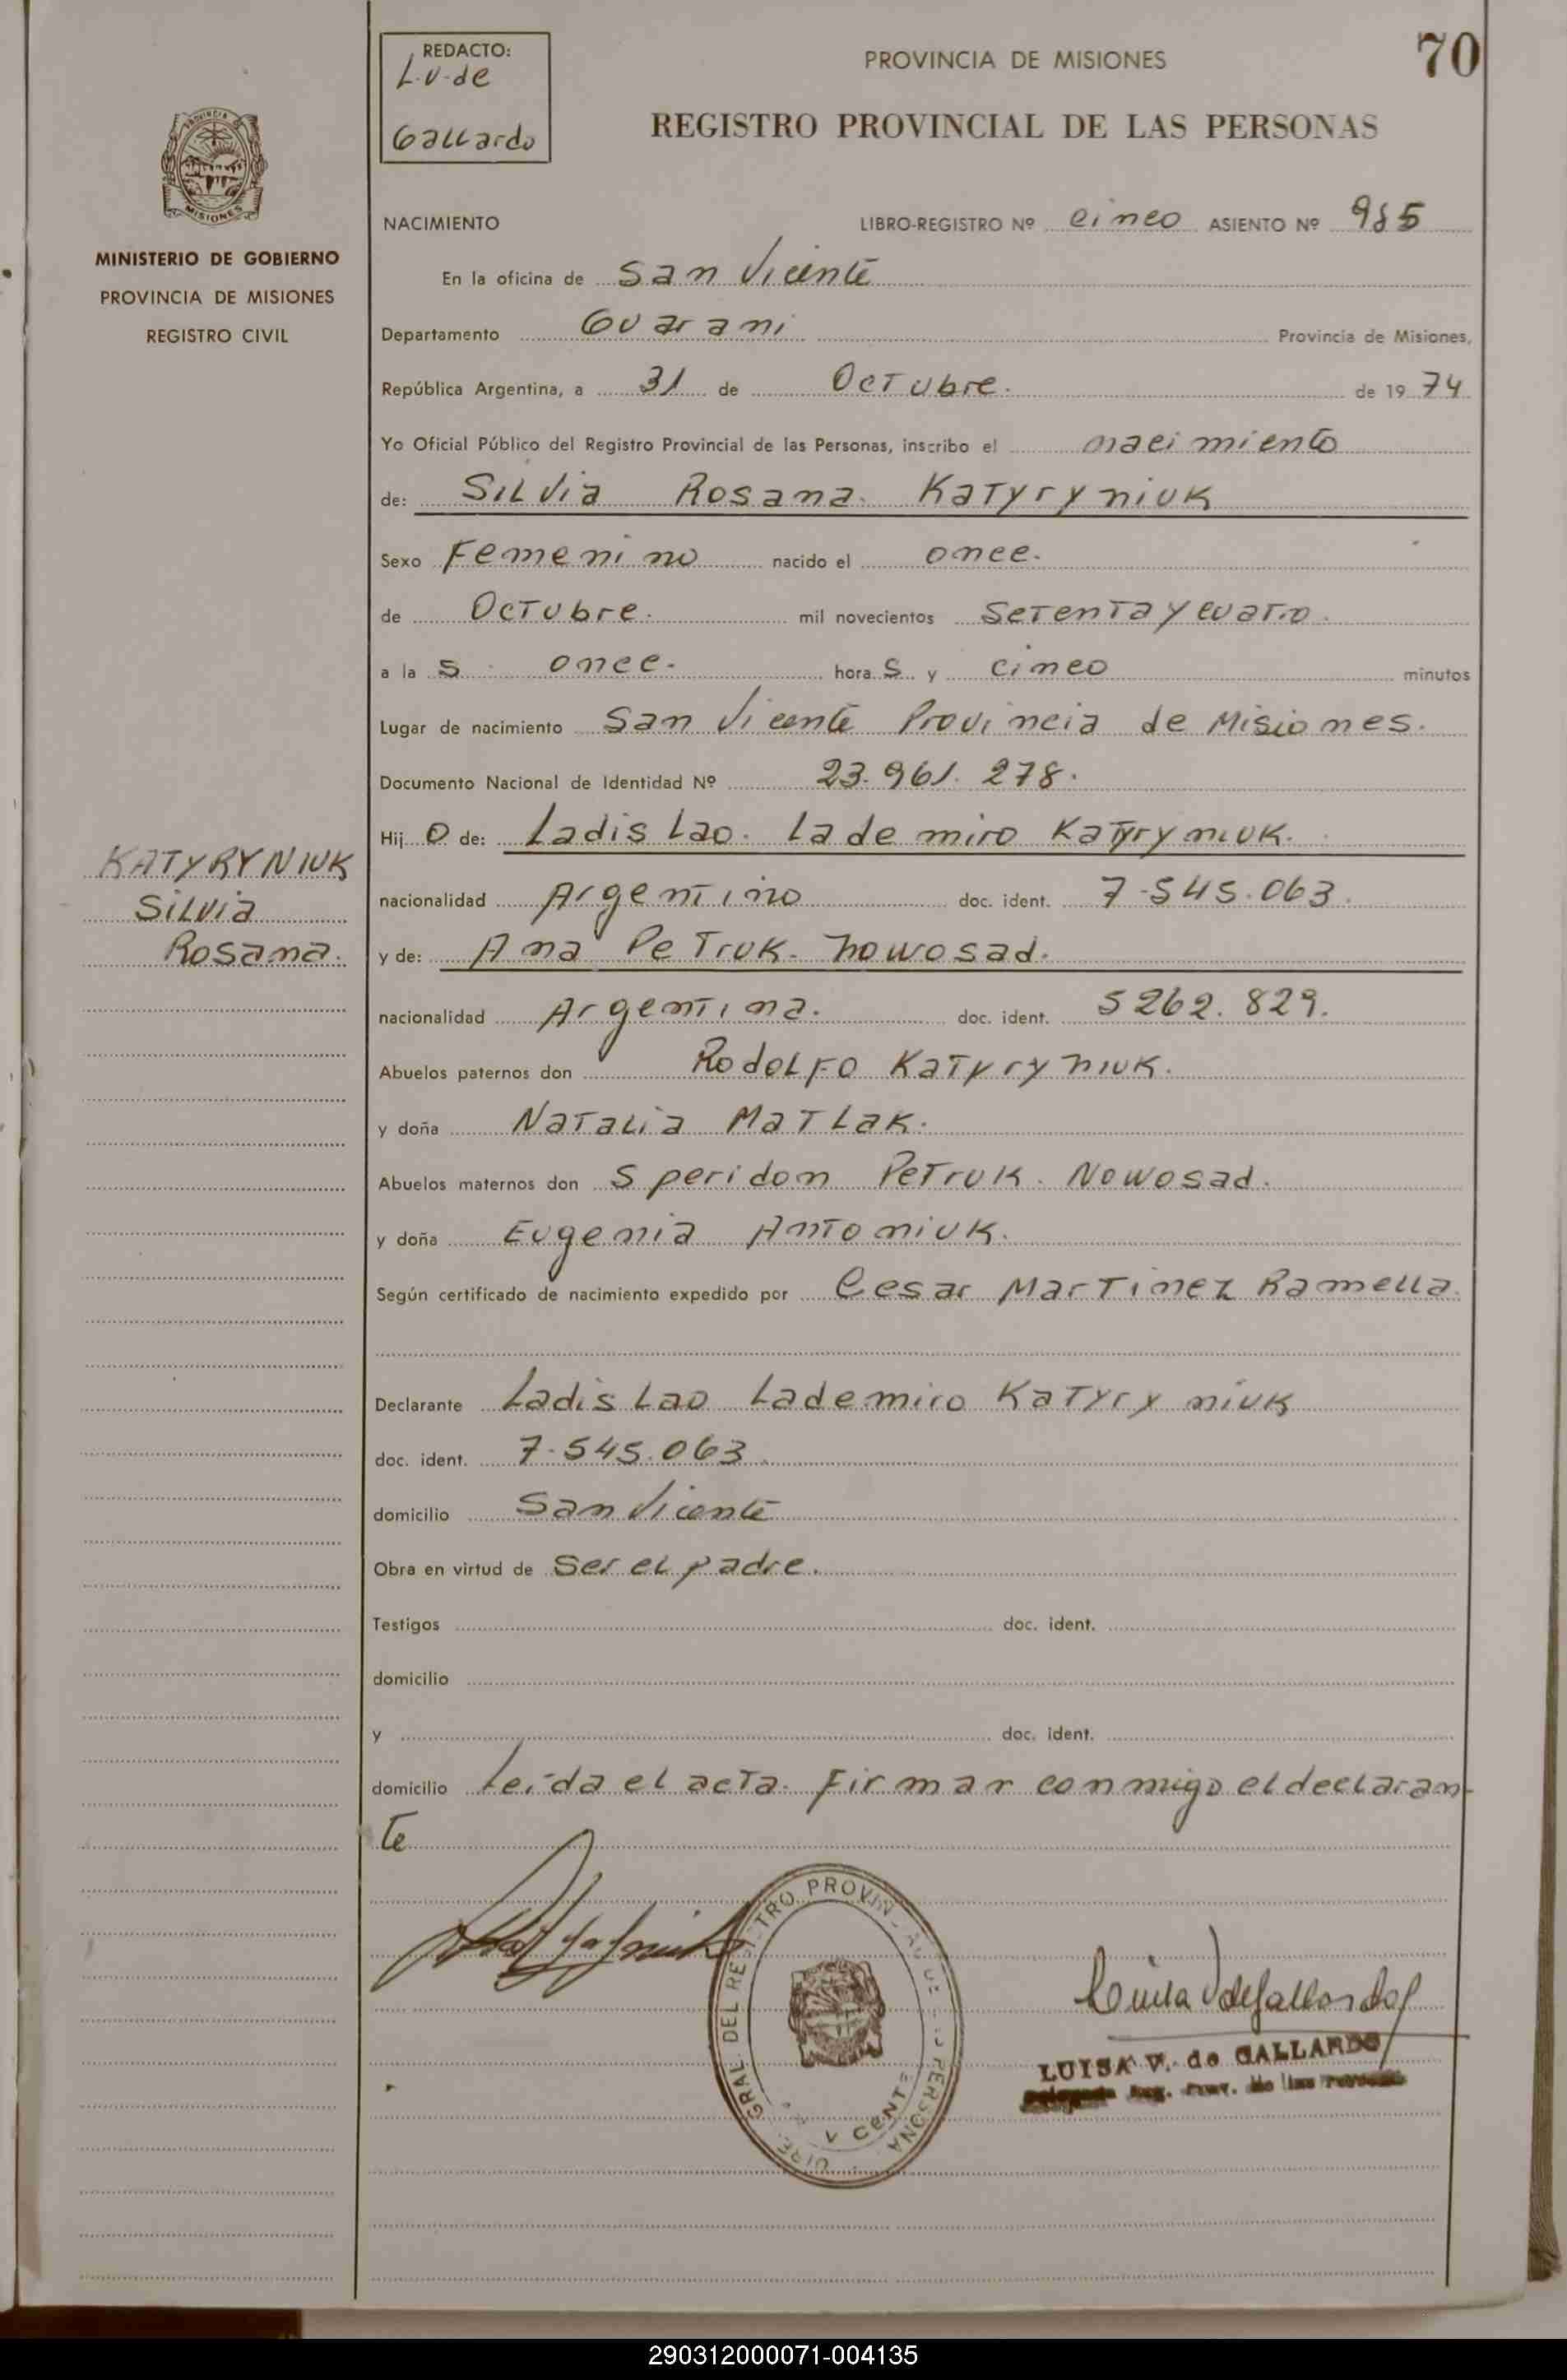 REDACTO:
L.V. de
Gallardo
PROVINCIA DE MISIONES
70
REGISTRO PROVINCIAL DE LAS PERSONAS
PROVINCIA DE
MISIONES
MINISTERIO DE GOBIERNO
PROVINCIA DE MISIONES
REGISTRO CIVIL
NACIMIENTO LIBRO-REGISTRO Nº cinco ASIENTO Nº 985
En la oficina de San Vicente
Departamento Guarani Provincia de Misiones,
República Argentina, a 31 de Octubre. de 1974
Yo Oficial Público del Registro Provincial de las Personas, inscribo el nacimiento
de: Silvia Rosana Katyryniuk
Sexo Femenino nacido el once.
de Octubre. mil novecientos setenta y cuatro.
a las once. horas y cinco minutos
Lugar de nacimiento San Vicente Provincia de Misiones.
Documento Nacional de Identidad Nº 23.961.278.
Hijo de: Ladislao. Lademiro Katyryniuk.
KATYRYNIUK
Silvia
Rosana.
nacionalidad Argentino doc. ident. 7.545.063.
y de: Ana Petruk. Nowosad.
nacionalidad Argentina. doc. ident. 5262.829.
Abuelos paternos don Rodolfo Katyryniuk.
y doña Natalia Matlak.
Abuelos maternos don Speridon Petruk. Nowosad.
y doña Eugenia Antoniuk.
Según certificado de nacimiento expedido por Cesar Martinez Ramella.
Declarante Ladislao Lademiro Katyryniuk
doc. ident. 7.545.063.
domicilio San Vicente
Obra en virtud de ser el padre.
Testigos doc. ident.
domicilio
y doc. ident.
domicilio Leida el acta. Firman conmigo el declaran-
te
Luisa V de Gallardo
LUISA V. de GALLARDO
290312000071-004135